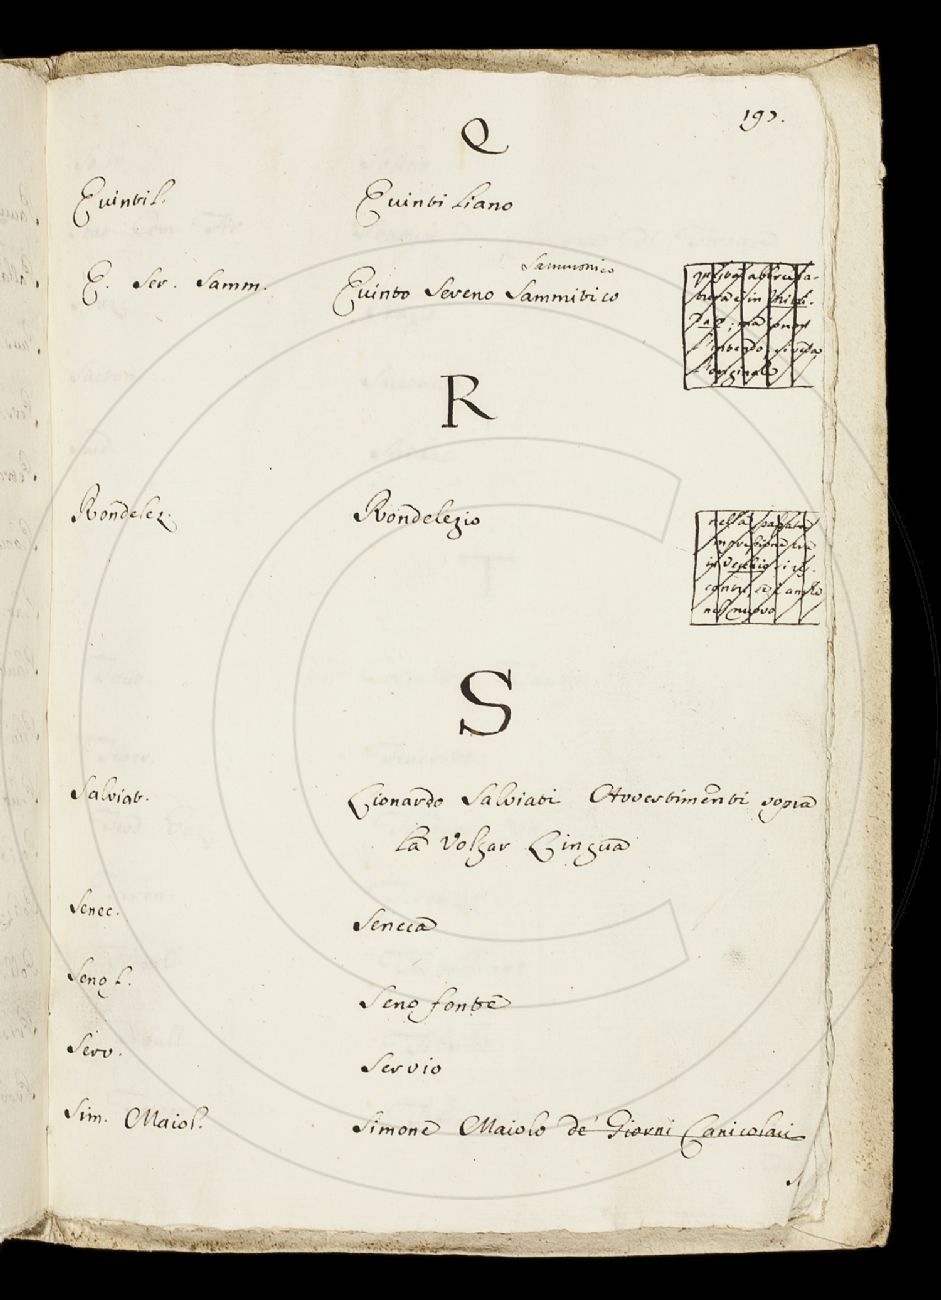 Q
197.
Quintil.
Quintiliano
Sammonico
Q. Ser. Samm.
Quinto Sereno Sammitico
R
Rondelez.
Rondelezio
nella
in
nel nuovo
S
Salviat.
Lionardo Salviati Avvertimenti sopra
la Volgar Lingua
Senec.
Seneca
Senof.
Senofonte
Serv.
Servio
Sim. Maiol.
Simone Maiolo de' Giorni Canicolari